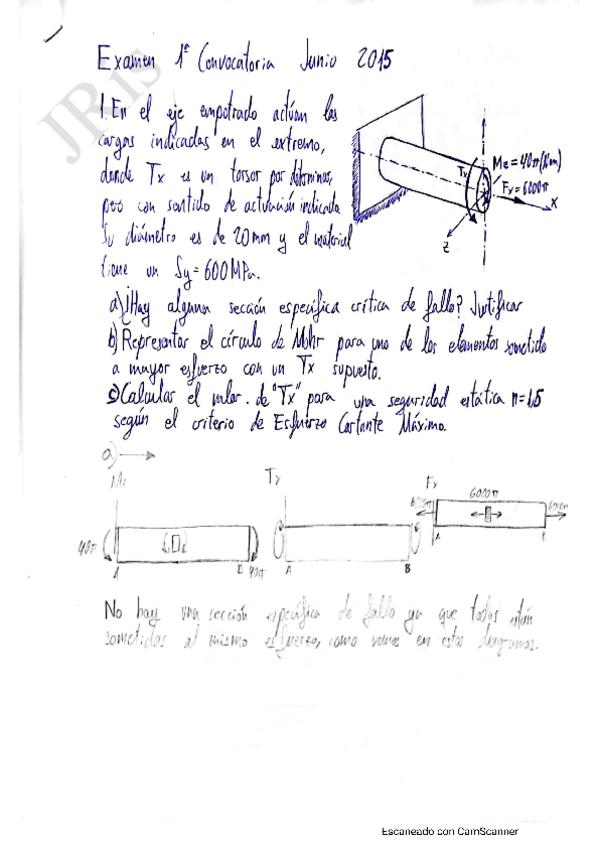 JRis
Examen 1ª Convocatoria Junio 2015
1. En el eje empotrado actúan las
cargas indicadas en el extremo,
donde Tx es un torsor por determinar,
pero con sentido de actuación indicada
Su diámetro es de 20mm y el material
tiene un Sy=600MPa.
Tx
Mz=40π(Nm)
Fx=6000π
X
Z
a) ¿Hay alguna sección específica crítica de fallo? Justificar
b) Representar el círculo de Mohr para uno de los elementos sometido
a mayor esfuerzo con un Tx supuesto.
c) Calcular el valor. de "Tx" para una seguridad estática n=1,5
según el criterio de Esfuerzo Cortante Máximo.
a)
Mz
Tx
Fx
40π
40π
A
B
A
B
6000π
6000π
A
No hay una sección específica de fallo ya que todas están
sometidas al mismo esfuerzo, como vemos en estos diagramas.
Escaneado con CamScanner